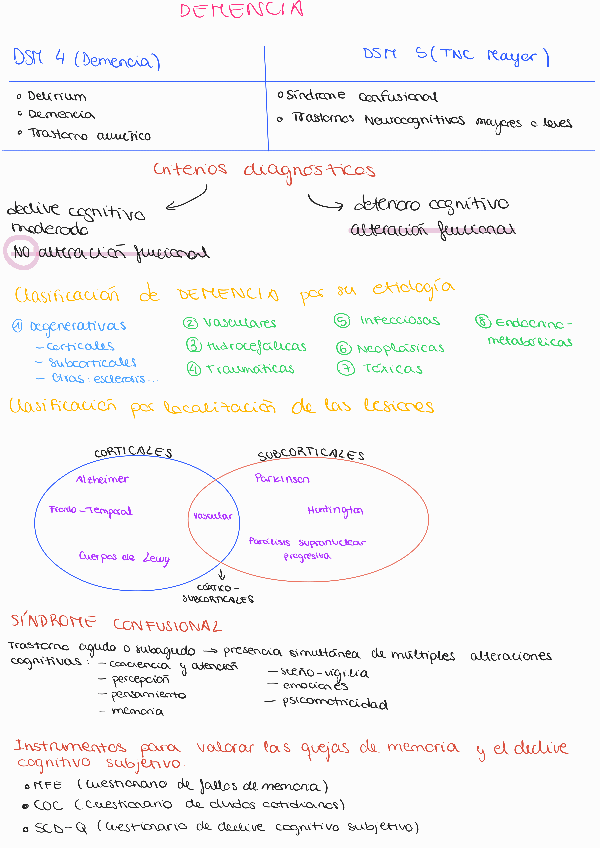 DEMENCIA
DSM 4 (Demencia)
DSM 5 (TNC Mayor)
Delirium
Demencia
Trastorno amnésico
Síndrome confusional
Trastornos Neurocognitivos mayores o leves
Criterios diagnósticos
declive cognitivo
moderado
NO alteración funcional
deterioro cognitivo
alteración funcional
Clasificación de DEMENCIA por su etiología
① Degenerativas
- corticales
- subcorticales
- Otras: esclerosis...
② Vasculares
③ Hidrocefálicas
④ Traumáticas
⑤ Infecciosas
⑥ Neoplásicas
⑦ Tóxicas
⑧ Endocrino-
metabólicas
Clasificación por localización de las lesiones
CORTICALES
Alzheimer
Fronto-Temporal
Cuerpos de Lewy
Vascular
SUBCORTICALES
Parkinson
Huntington
Parálisis supranuclear
progresiva
CÓRTICO-
SUBCORTICALES
SÍNDROME CONFUSIONAL
Trastorno agudo o subagudo → presencia simultánea de múltiples alteraciones
cognitivas: - conciencia y atención
- percepción
- pensamiento
- memoria
- sueño-vigilia
- emociones
- psicomotricidad
Instrumentos para valorar las quejas de memoria y el declive
cognitivo subjetivo.
MFE (Cuestionario de fallos de memoria)
COC (Cuestionario de olvidos cotidianos)
SCD-Q (Cuestionario de declive cognitivo subjetivo)